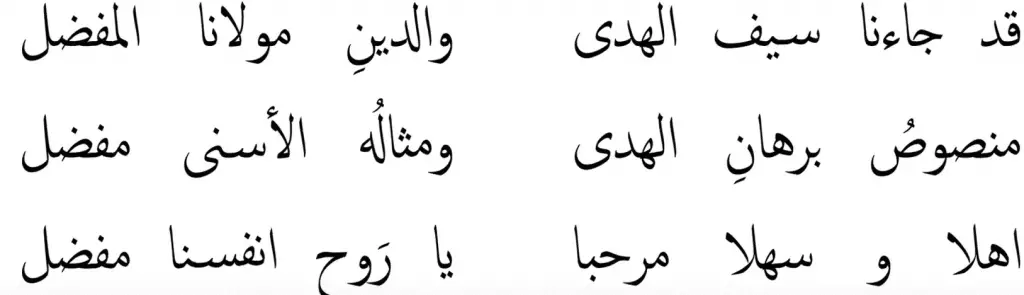 قد جاءنا سيف الهدى والدينِ مولانا المفضل
منصوصُ برهانِ الهدى ومثالُه الأسنى مفضل
اهلا و سهلا مرحبا يا رَوح انفسنا مفضل